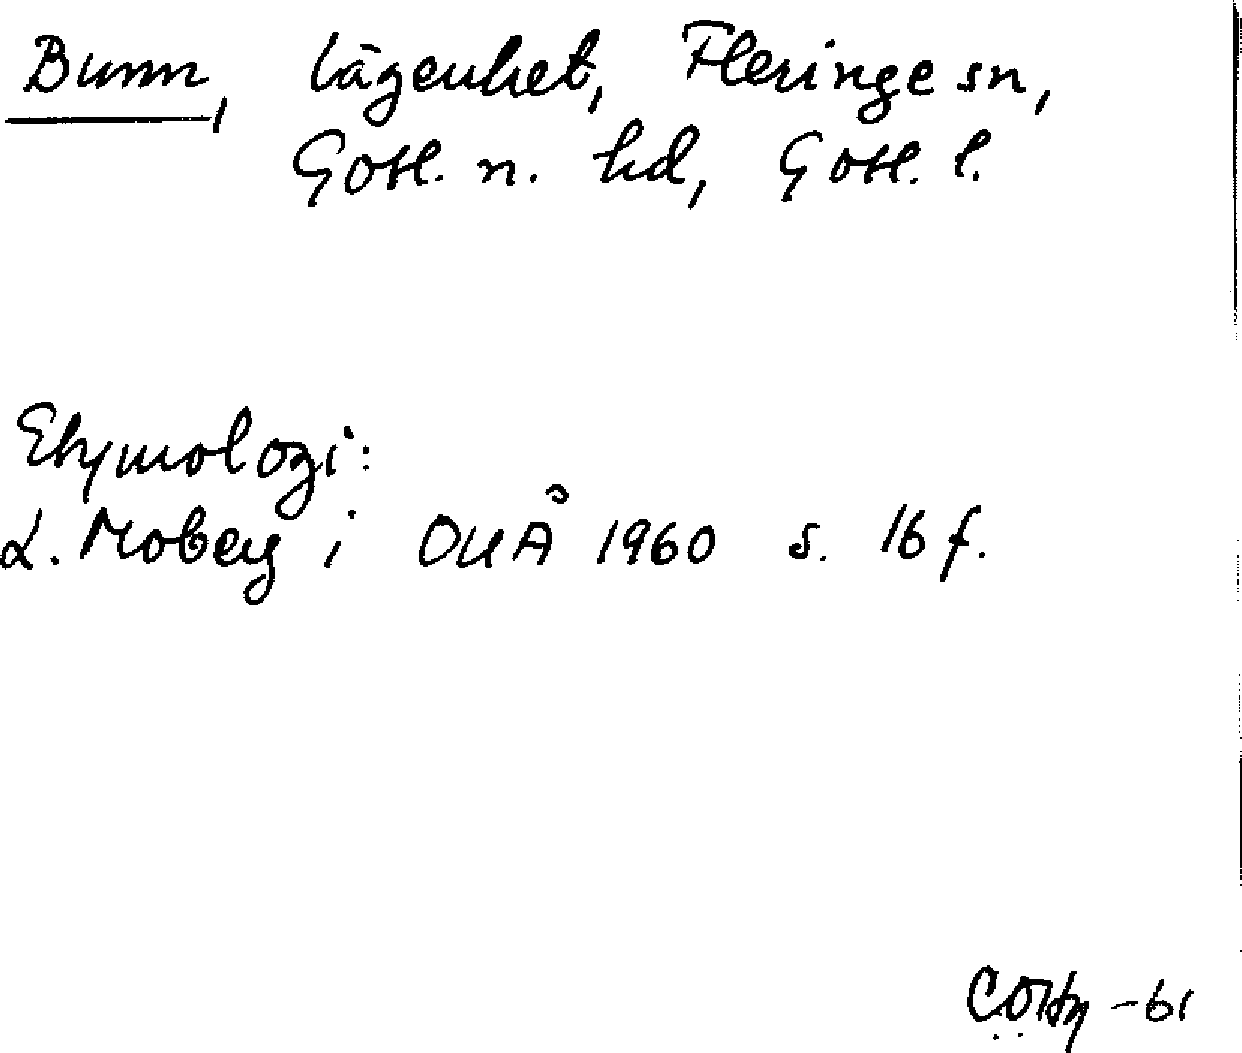 Bunn, lägenhet, Fleringe sn,
Gotl. n. hd, Gotl. l.
Etymologi:
L. Moberg i OUÅ 1960 s. 16 f.
-61